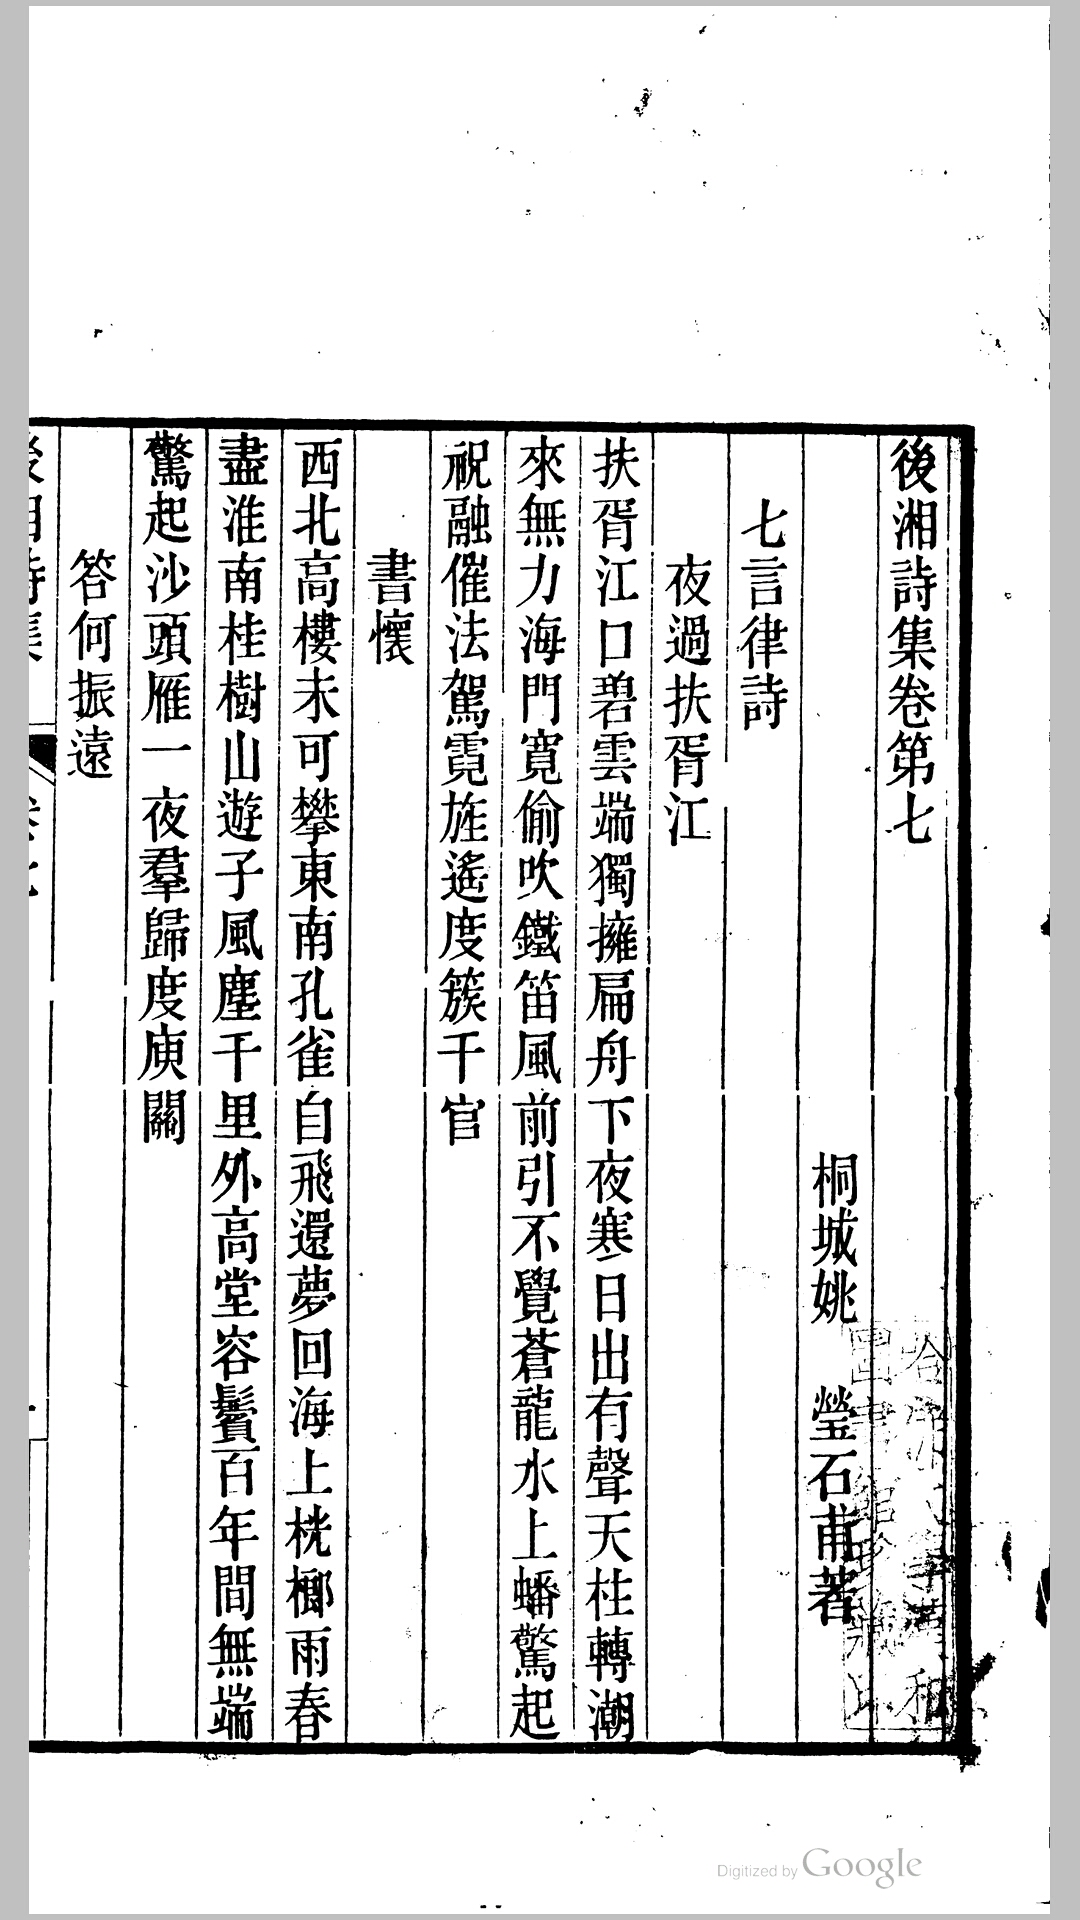 後湘詩集卷第七
桐城姚　瑩石甫著
七言律詩
夜過扶胥江
扶胥江口碧雲端獨擁扁舟下夜寒日出有聲天柱轉潮
來無力海門寬偷吹鐵笛風前引不覺蒼龍水上蟠驚起
祝融催法駕霓旌遙度簇千官
書懷
西北高樓未可攀東南孔雀自飛還夢回海上桄榔雨春
盡淮南桂樹山遊子風塵千里外高堂容鬢百年間無端
驚起沙頭雁一夜羣歸度庾關
答何振遠
Digitized by Google